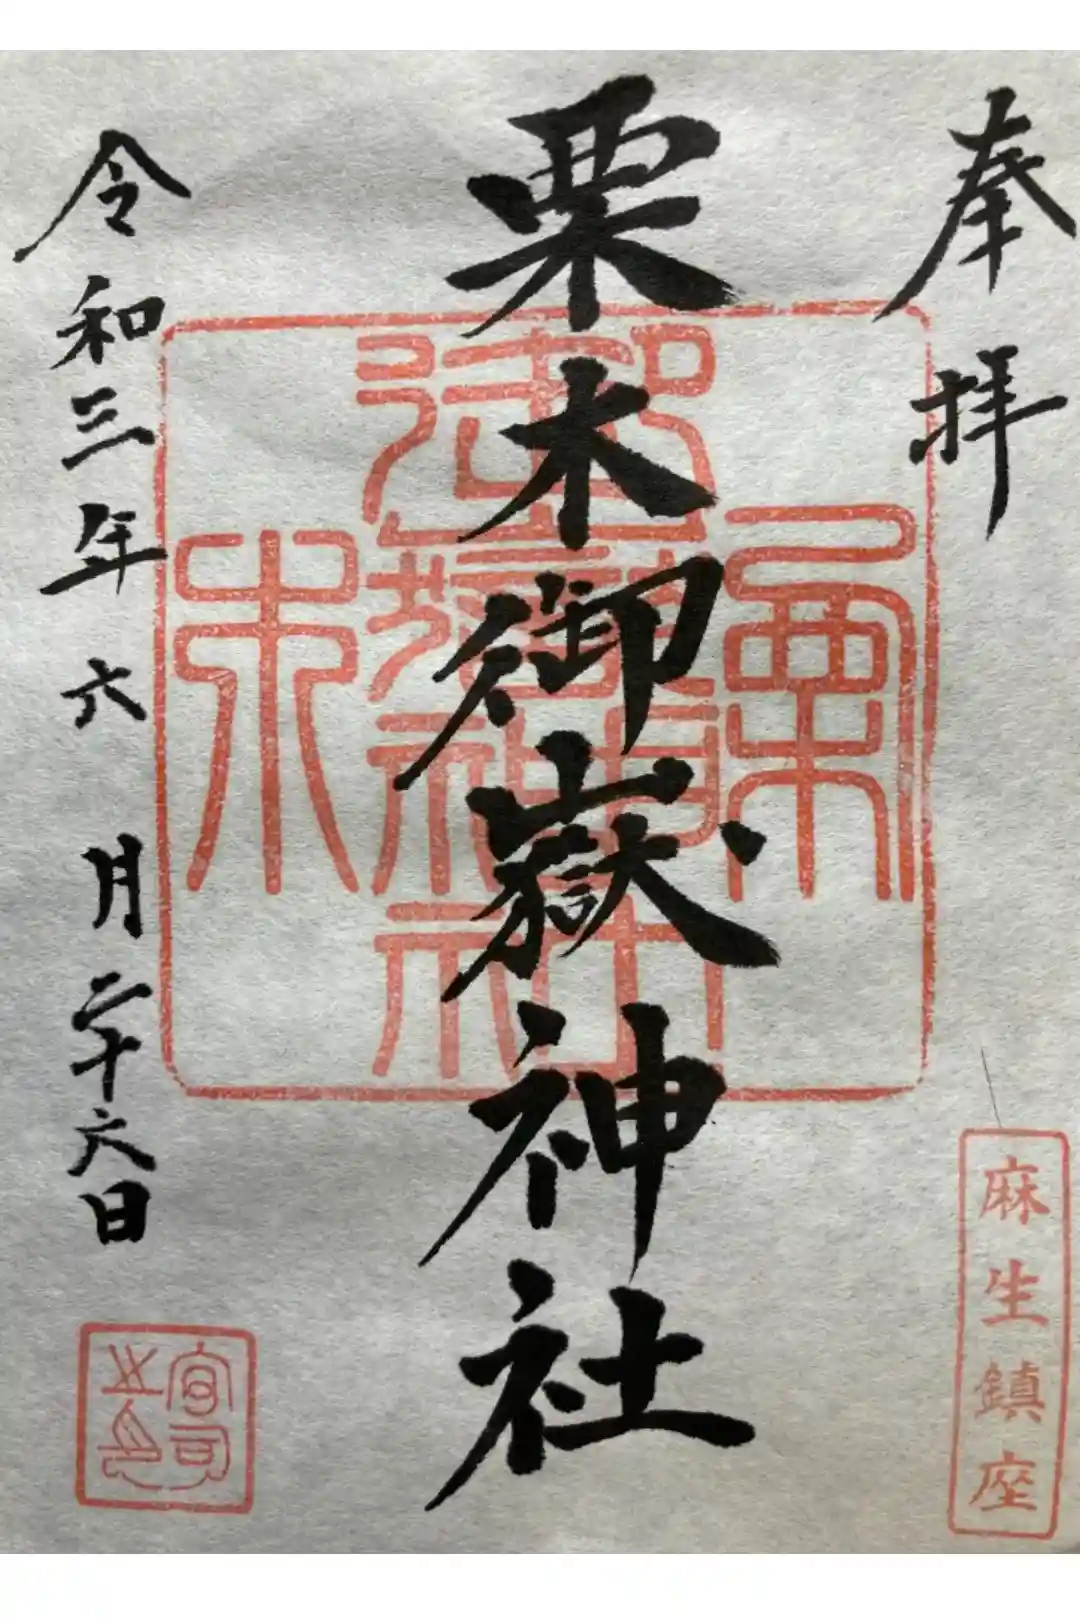 奉拝
麻生鎮座
栗木御嶽神社
栗木
御嶽神社
令和三年六月二十六日
宮司之印